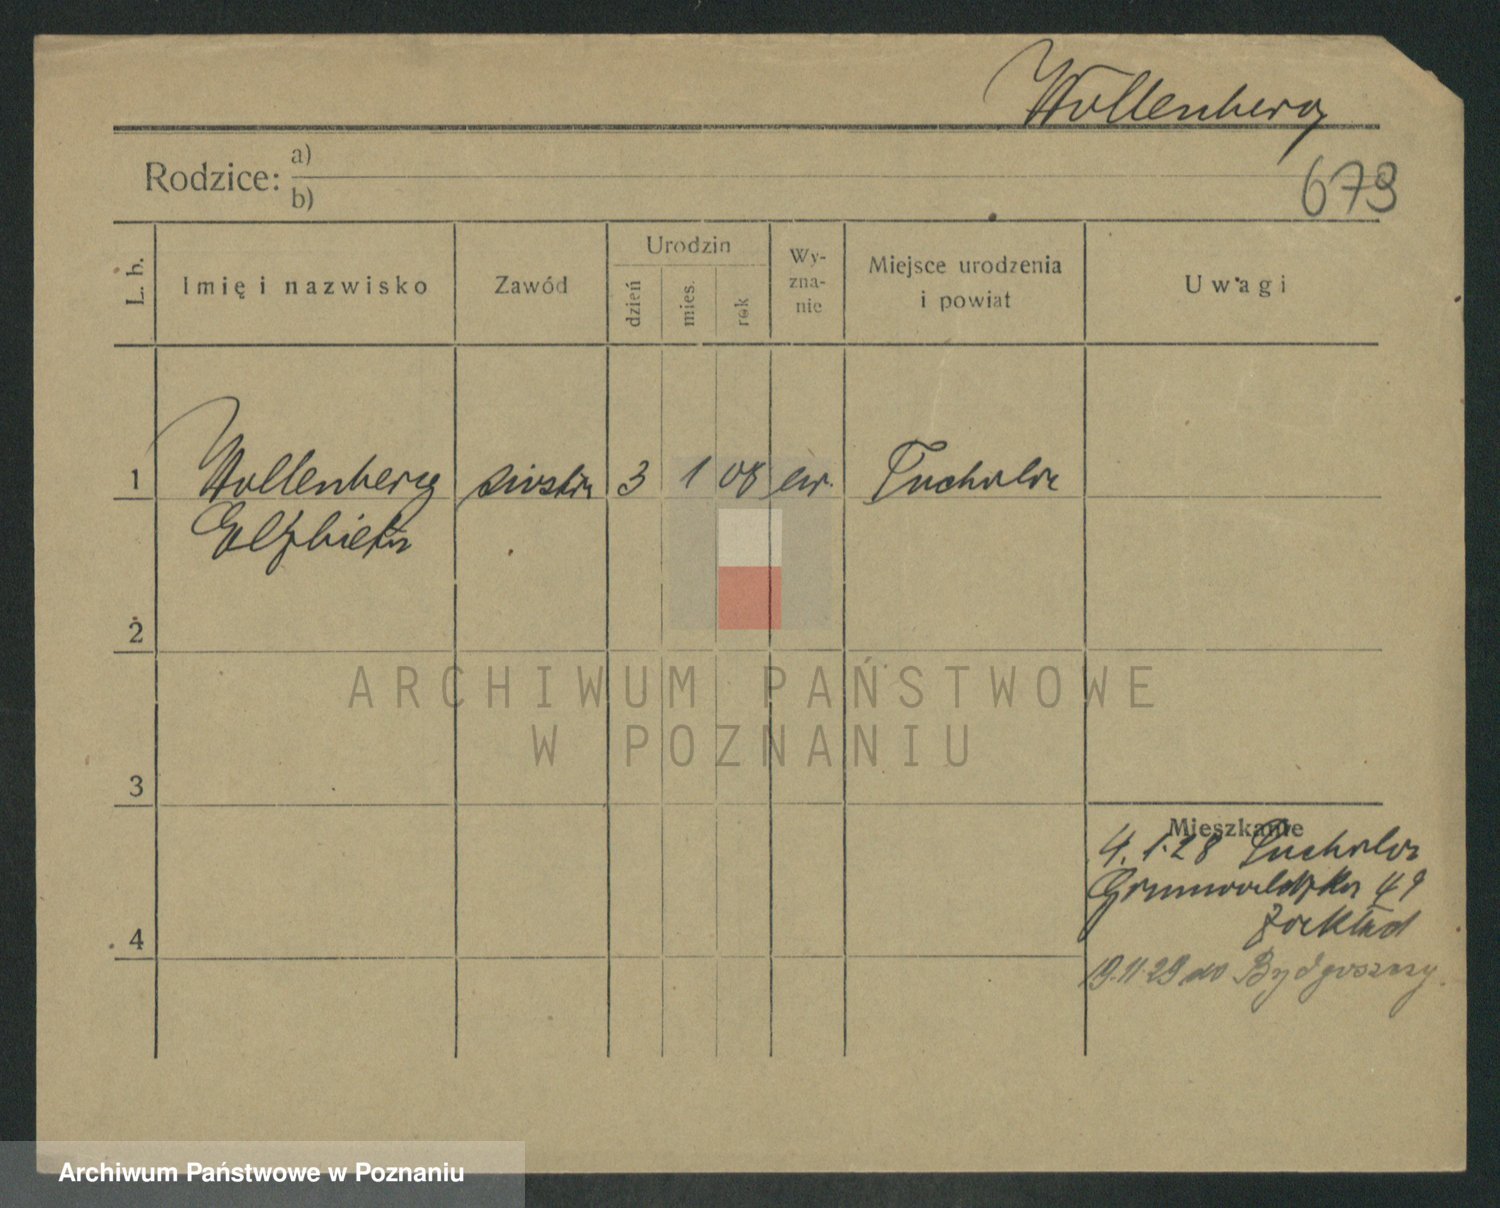 Wollenberg
Rodzice: a)
b)
673
L. b.
Imię i nazwisko
Zawód
Urodzin
dzień
mies.
rok
Wy-
zna-
nie
Miejsce urodzenia
i powiat
Uwagi
1 Wollenberg siostra 3 1 08 ew. Tuchola
Elżbieta
2
3
4
Mieszkanie
4. 1. 28 Tuchola
Grunwaldzka 49
zakład
19.11.29 do Bydgoszczy
ARCHIWUM PAŃSTWOWE
W POZNANIU
Archiwum Państwowe w Poznaniu